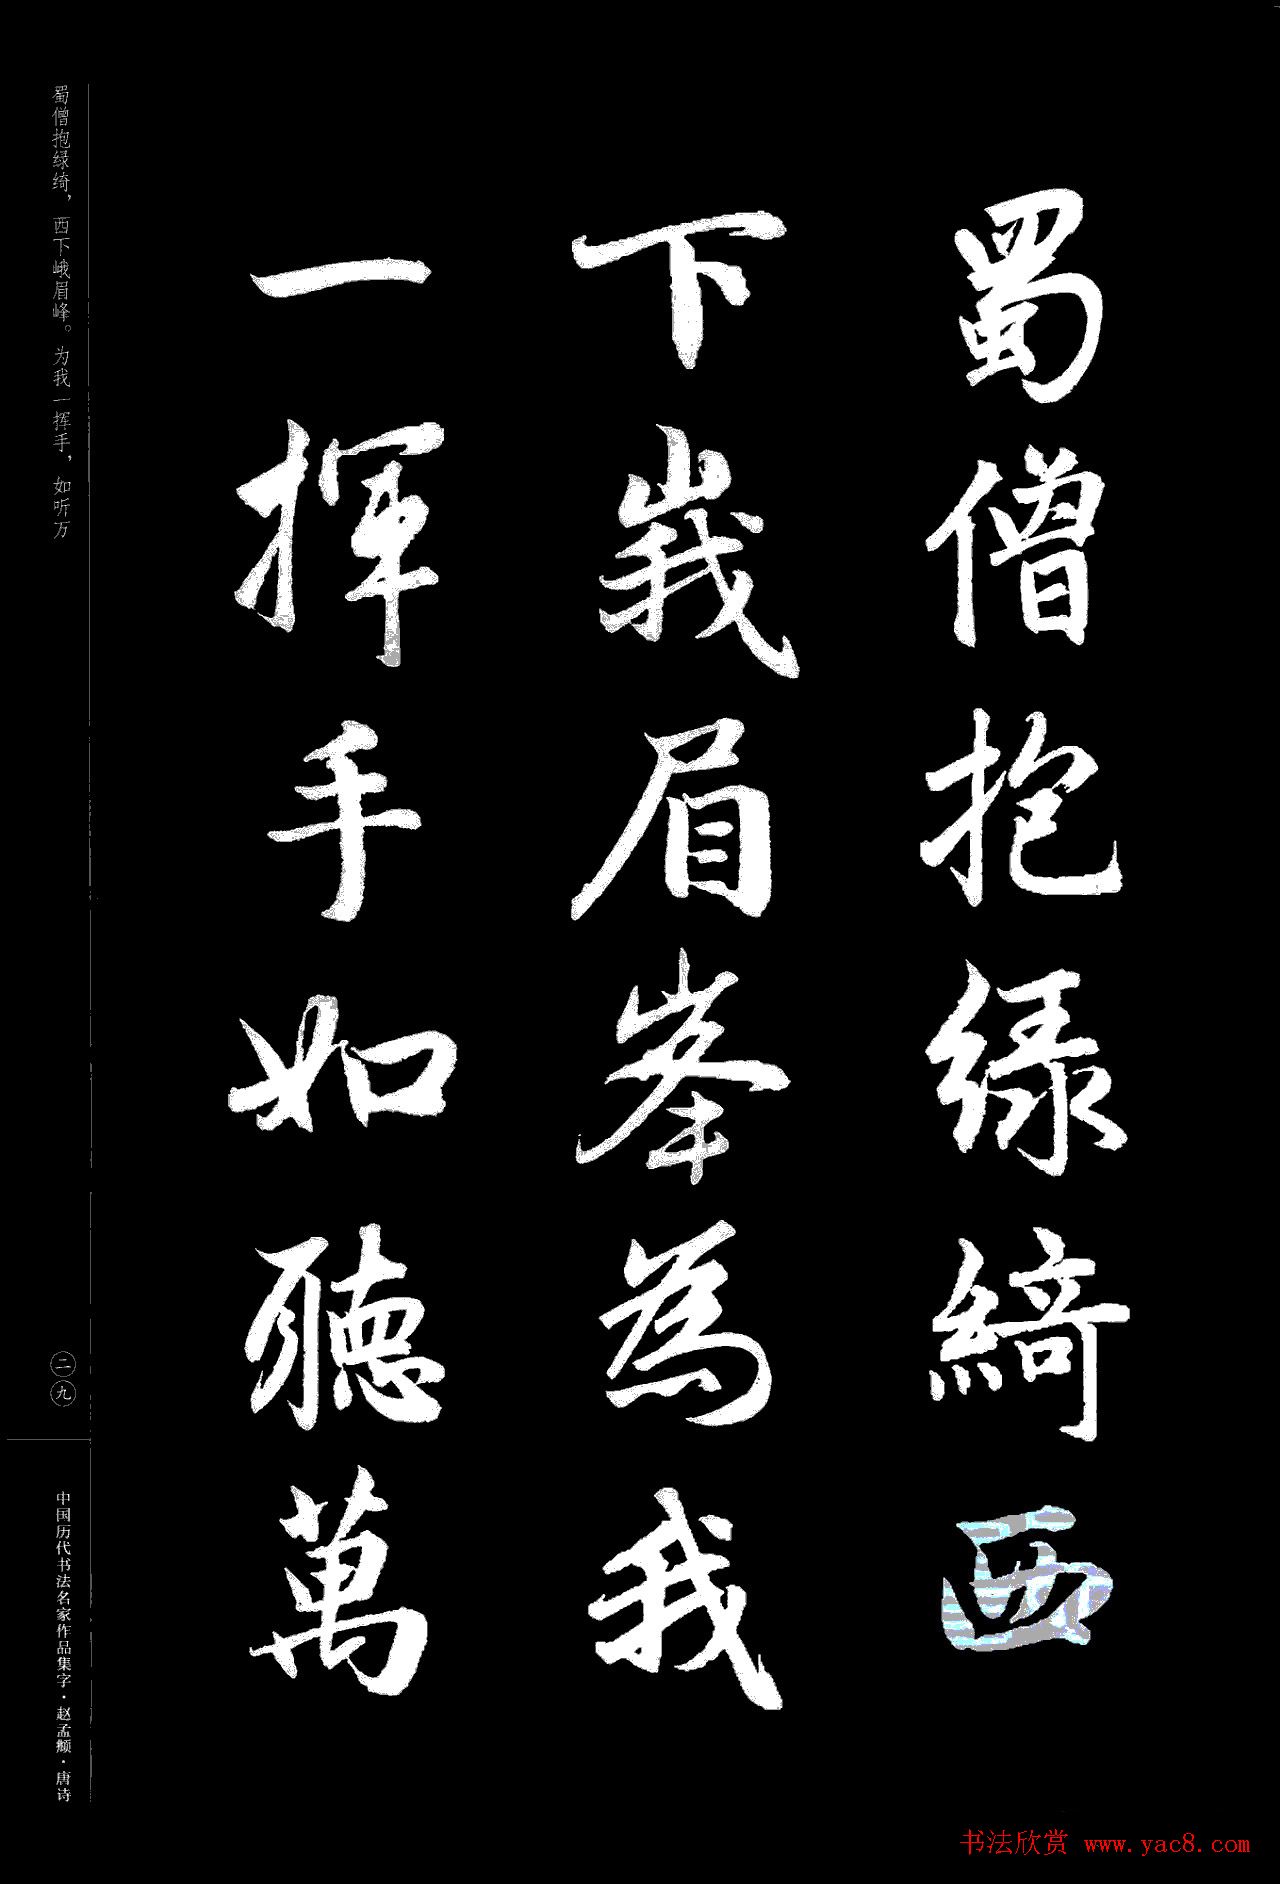 蜀僧抱緑綺西
下峩眉峯為我
一揮手如聽萬
蜀僧抱绿绮，西下峨眉峰。为我一挥手，如听万
二九
中国历代书法名家作品集字·赵孟頫·唐诗
书法欣赏 www.yac8.com